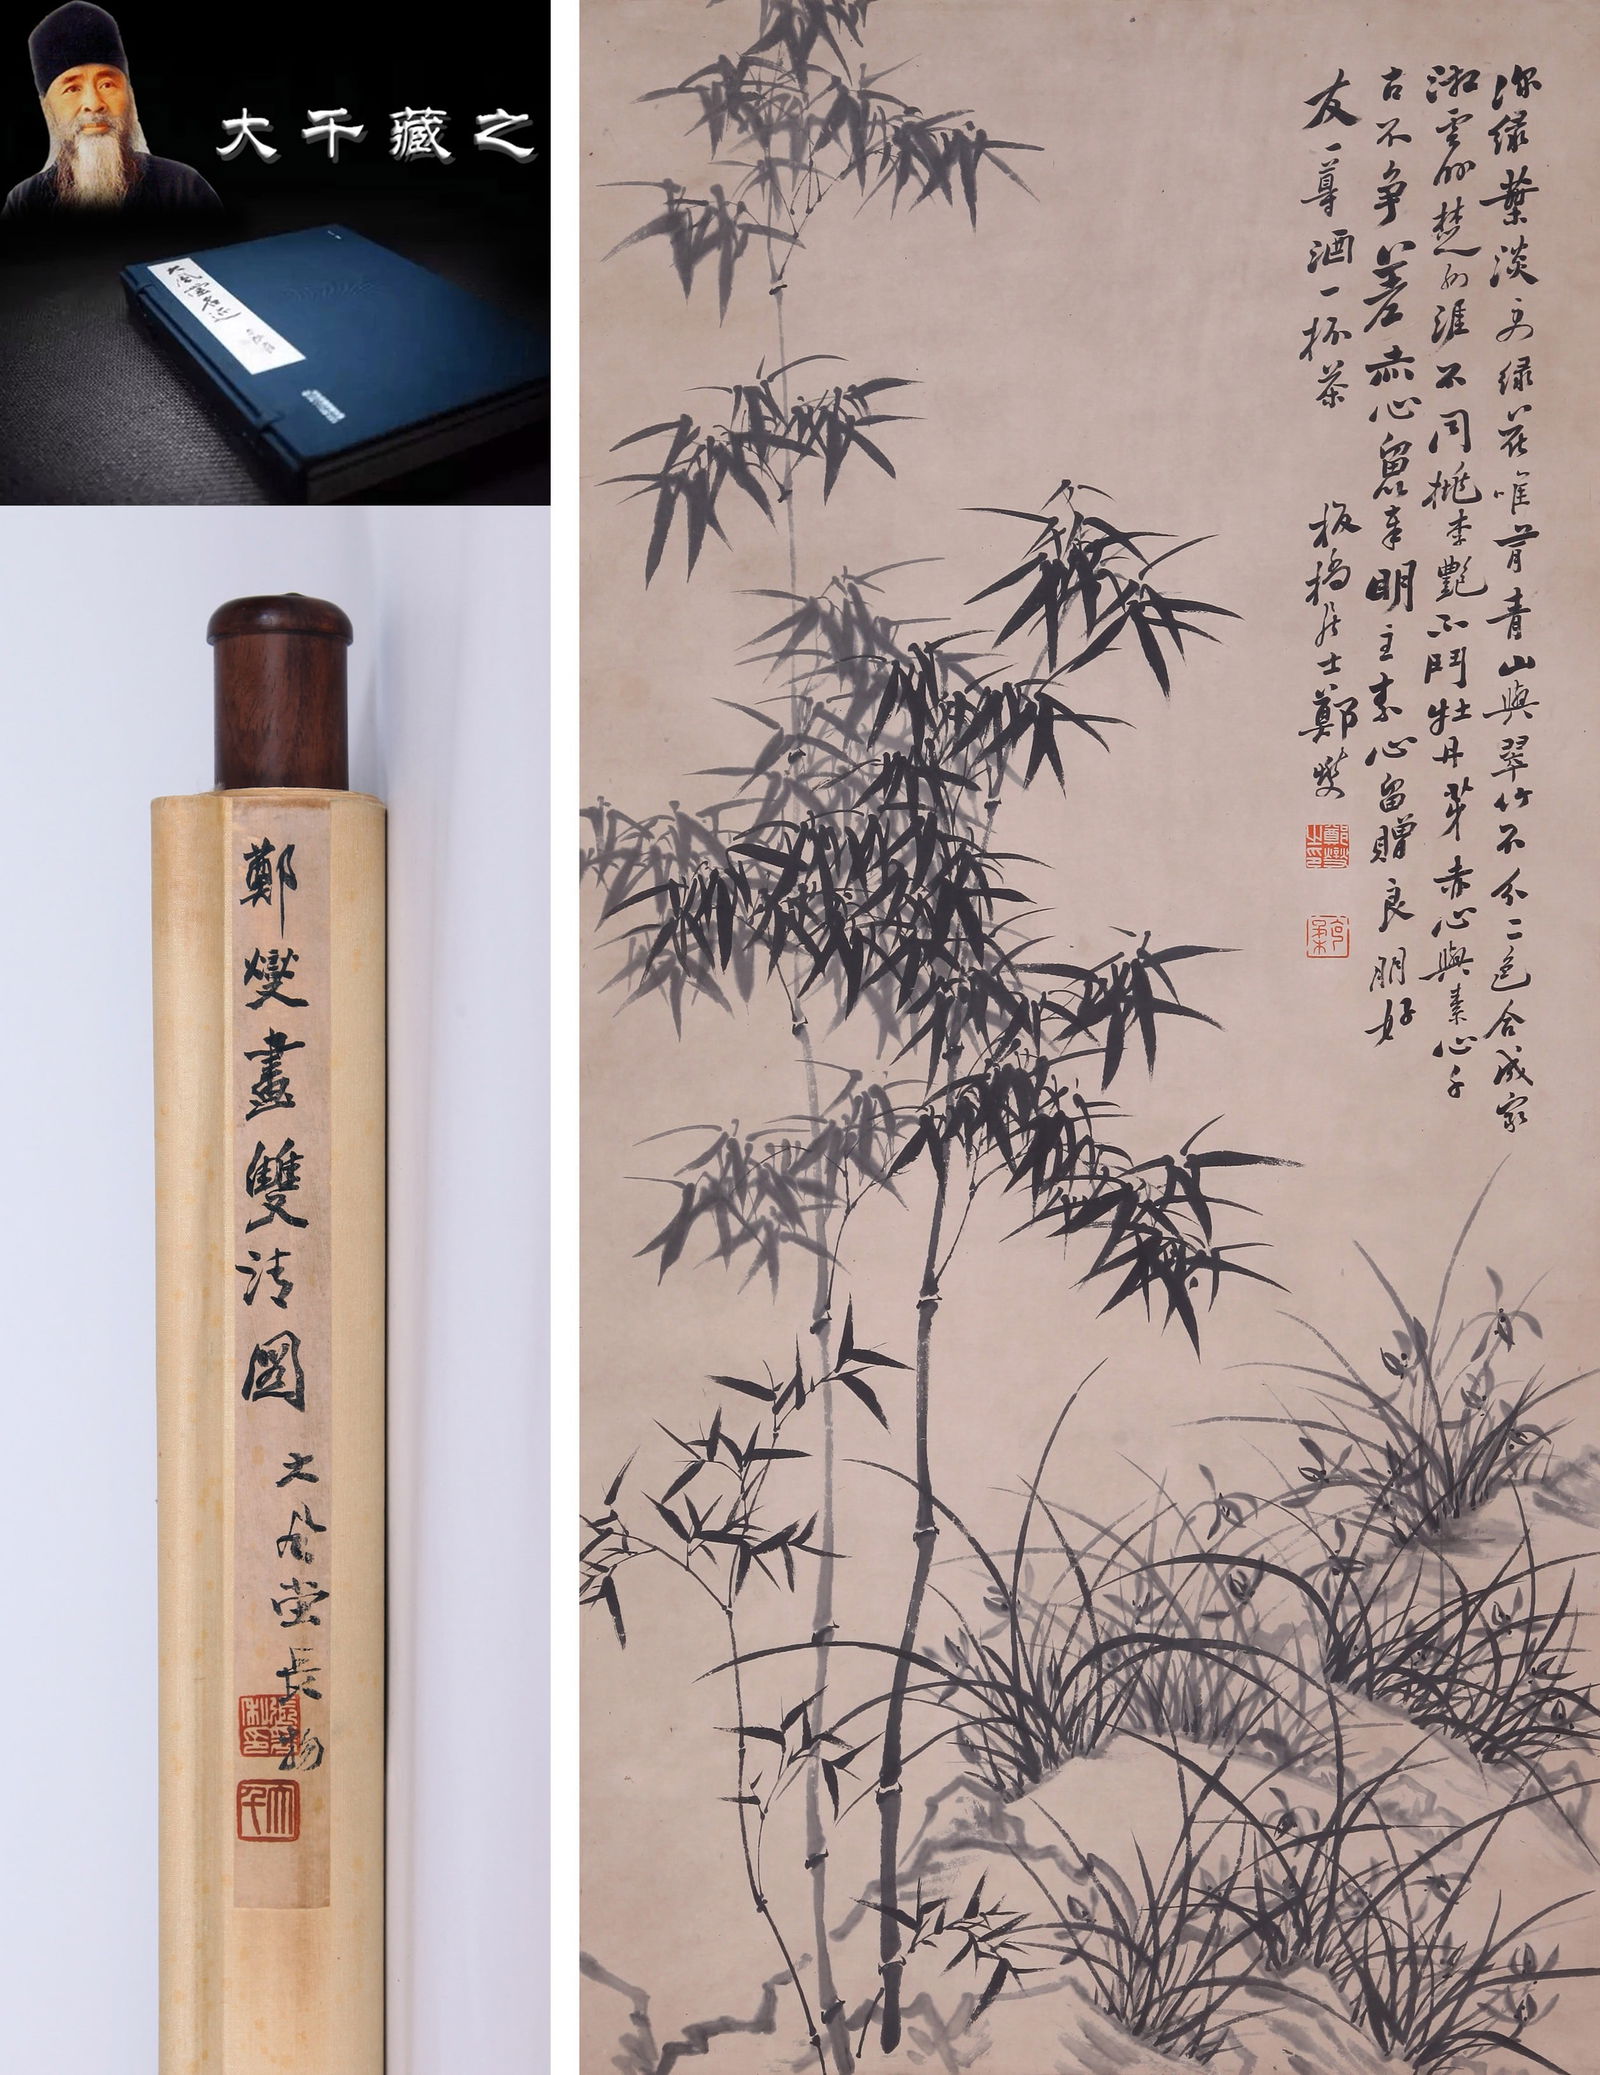 大千藏之
大風堂名迹
鄭燮畫雙清圖
大風堂長物
大千
深綠葉淡綠花唯青山與翠竹不分二色合成家
湘雲楚誰不同桃李艷不鬥牡丹芽赤心與素心千
古不爭差赤心留奉明主素心留贈良朋好
友一尊酒一杯茶 板橋居士鄭燮
鄭燮之印